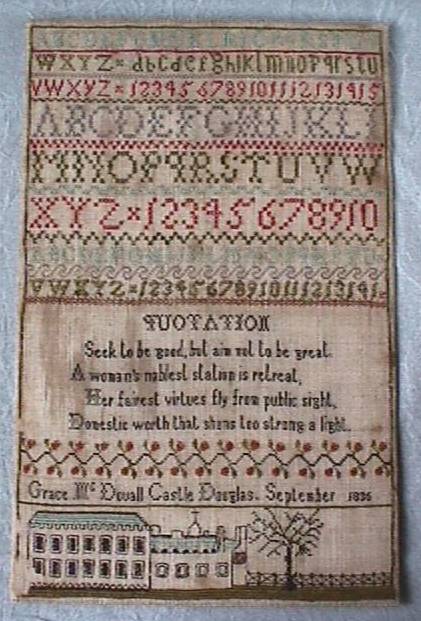 ABCDEFGHI
WXYZ× abcdefghiklmnopqrstu
VWXYZ×123456789101112131415
ABCDEFGHIJKLI
MNOPQRSTUVW
XYZ×12345678910
VWXYZ=1234567891011121314
QUOTATION
Seek to be good, but aim not to be great.
A woman's noblest station is retreat,
Her fairest virtues fly from public sight,
Domestic worth that shuns too strong a light.
Grace Mc Douall Castle Douglas. September 1836